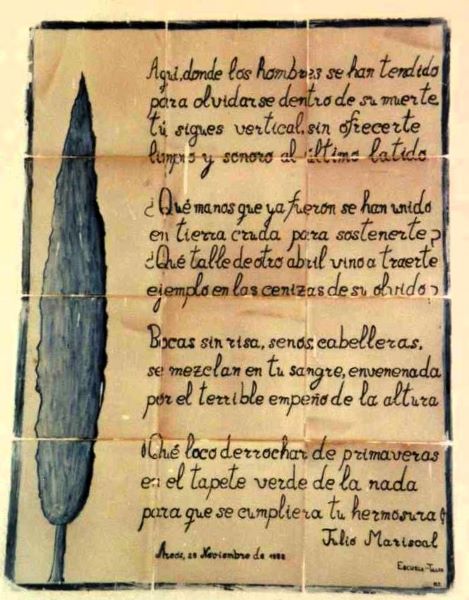 Aquí, donde los hombres se han tendido
para olvidarse dentro de su muerte
tú sigues vertical, sin ofrecerte
limpio y sonoro al último latido
¿Qué manos que ya fueron se han unido
en tierra cruda para sostenerte?
¿Qué talle de otro abril vino a traerte
ejemplo en las cenizas de su olvido?
Bocas sin risa, senos, cabelleras,
se mezclan en tu sangre, envenenada
por el terrible empeño de la altura
¡Qué loco derrochar de primaveras
en el tapete verde de la nada
para que se cumpliera tu hermosura!
Julio Mariscal
Arcos, 25 Noviembre de
Escuela-Taller